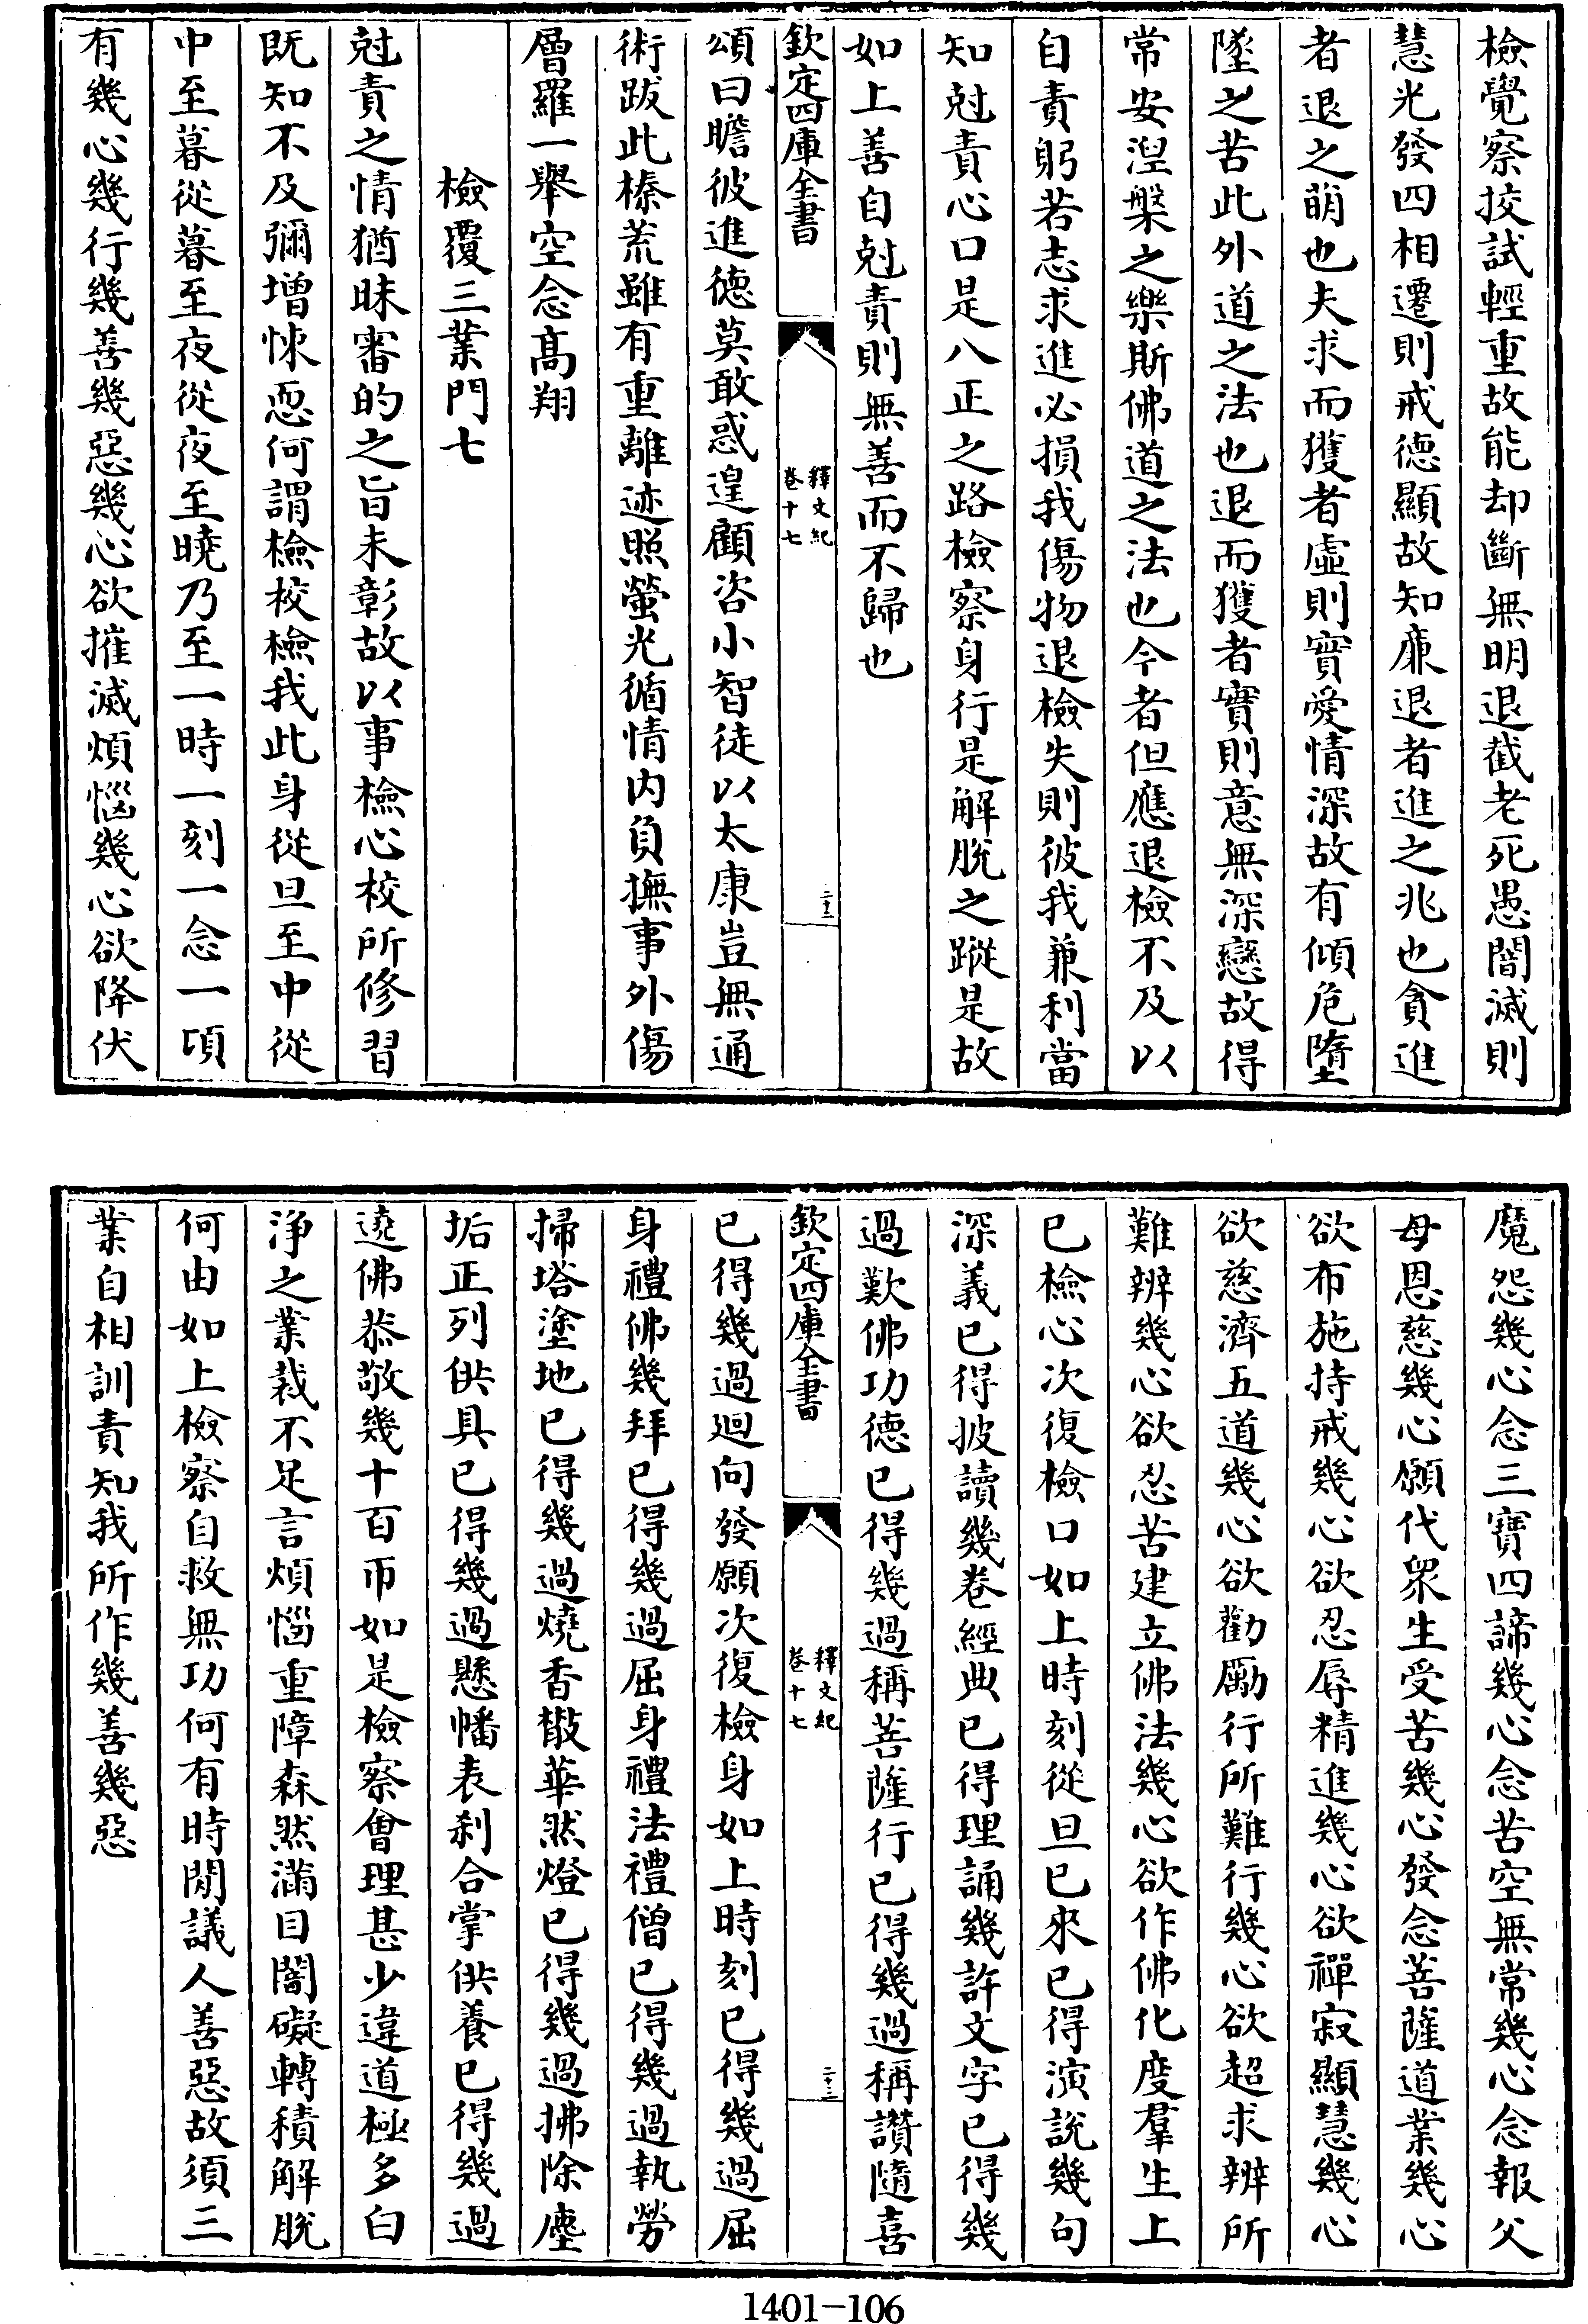 檢覺察挍試輕重故能却斷無明退截老死愚闇滅則
慧光發四相遷則戒德顯故知廉退者進之兆也貪進
者退之萌也夫求而獲者虛則實愛情深故有傾危墮
墜之苦此外道之法也退而獲者實則意無深戀故得
常安湼槃之樂斯佛道之法也今者但應退檢不及以
自責躬若志求進必損我傷物退檢失則彼我兼利當
知尅責心口是八正之路檢察身行是解脱之蹤是故
如上善自尅責則無善而不歸也
欽定四庫全書
釋文紀
卷十七
二十二
頌曰瞻彼進德莫敢惑遑顧咨小智徒以太康豈無通
術跋此榛荒雖有重離迹照螢光循情内負撫事外傷
層羅一舉空念髙翔
檢覆三業門七
尅責之情猶昧審的之旨未彰故以事檢心校所修習
既知不及彌增悚恧何謂檢校檢我此身從旦至中從
中至暮從暮至夜從夜至曉乃至一時一刻一念一頃
有幾心幾行幾善幾惡幾心欲摧滅煩惱幾心欲降伏
魔怨幾心念三寶四諦幾心念苦空無常幾心念報父
母恩慈幾心願代衆生受苦幾心發念菩薩道業幾心
欲布施持戒幾心欲忍辱精進幾心欲禪寂顯慧幾心
欲慈濟五道幾心欲勸勵行所難行幾心欲超求辨所
難辨幾心欲忍苦建立佛法幾心欲作佛化度羣生上
已檢心次復檢口如上時刻從旦已來已得演説幾句
深義已得披讀幾卷經典已得理誦幾許文字已得幾
過歎佛功德已得幾過稱菩薩行已得幾過稱讚隨喜
欽定四庫全書
釋文紀
卷十七
二十三
已得幾過廻向發願次復檢身如上時刻已得幾過屈
身禮佛幾拜已得幾過屈身禮法禮僧已得幾過執勞
掃塔塗地已得幾過燒香散華然燈已得幾過拂除塵
垢正列供具已得幾過懸幡表刹合掌供養已得幾過
遶佛恭敬幾十百帀如是檢察㑹理甚少違道極多白
淨之業裁不足言煩惱重障森然滿目闇礙轉積解脱
何由如上檢察自救無功何有時閒議人善惡故須三
業自相訓責知我所作幾善幾惡
1401-106